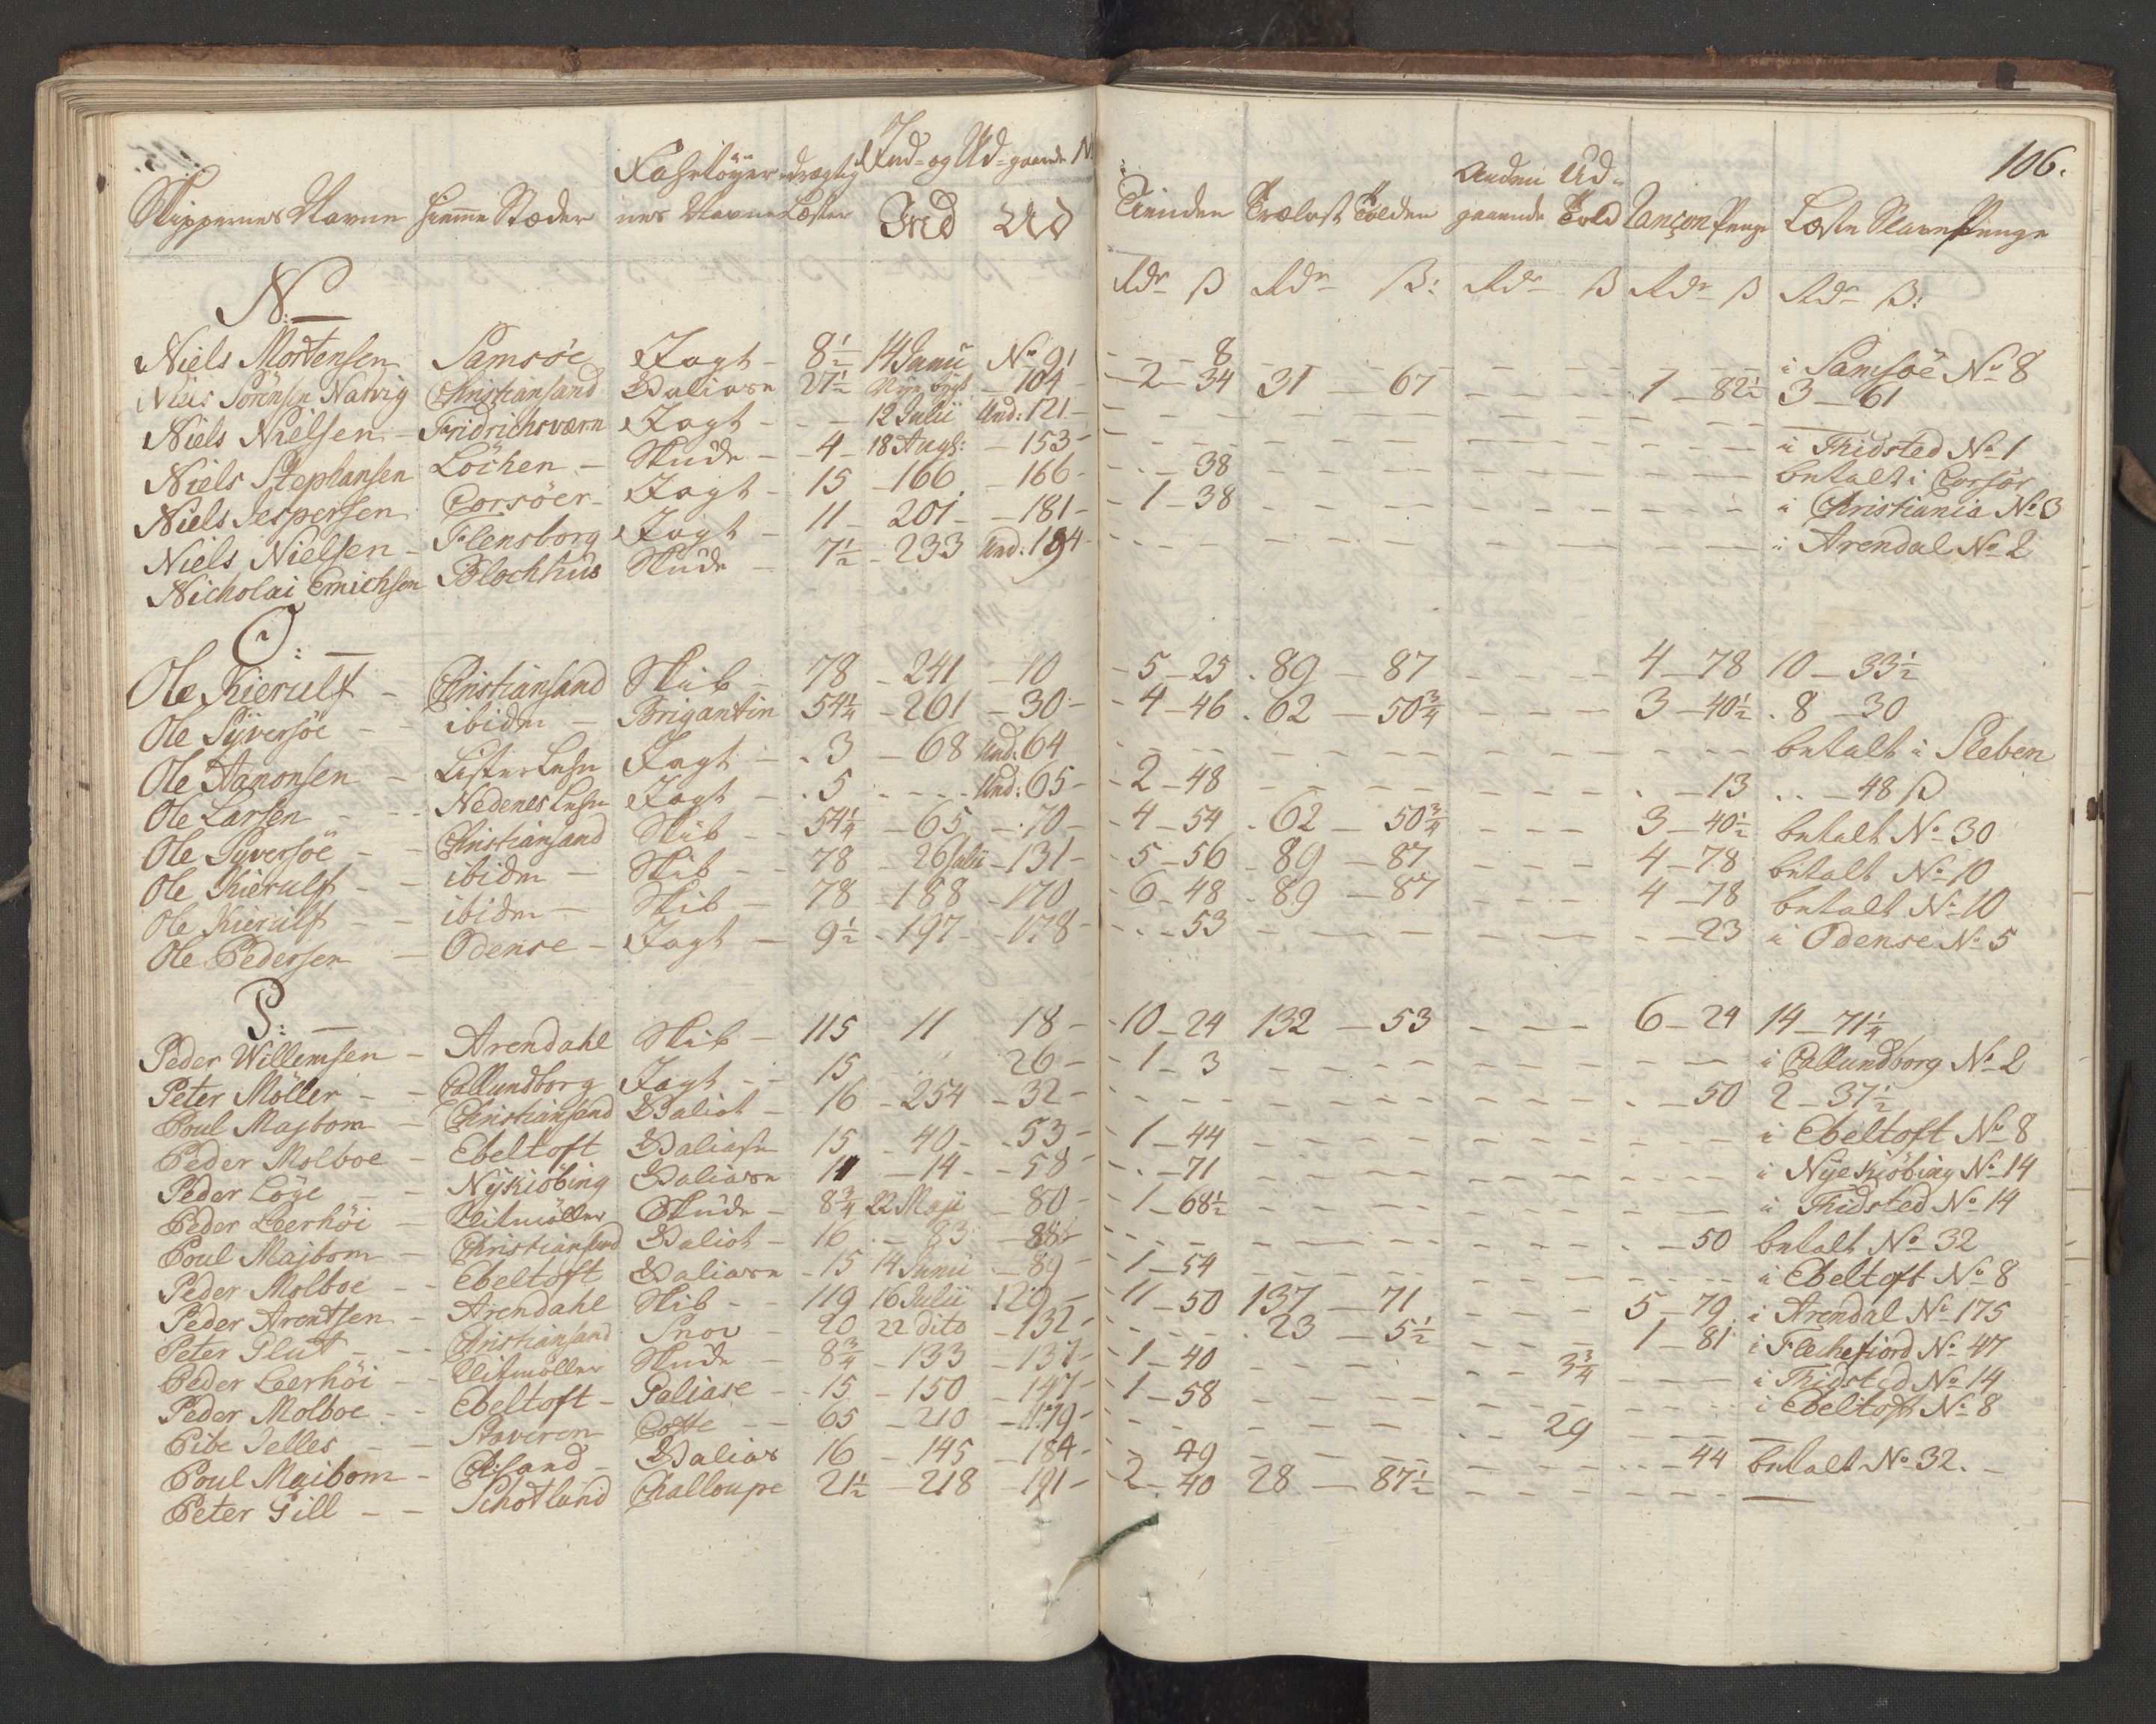 106.
Skippernes Navne Hiemme Stæder Fahrtöyernes Navne drægtig Læster Ind- og Ud-gaaende N: Ind Ud Tienden Trælast Tolden Anden Ud-gaaende Told Rançon Penge Læste Slave Penge
Rdr ß Rdr ß: Rdr ß Rdr ß Rdr ß:
N:
Niels Mortensen Samsöe Jagt - 8½ 14 Junii No 91 - - - 8 - - - - i Samsöe No 8
Niels Sörensen Narvig Christiansand Galiase 27½ Nye bygt - 104 - 2 - 34 31 - 67 - - - 1 - 82½ 3 - 61
Niels Nielsen - Fridrichsværn Jagt - - - 12 Julii Und: 121 - - - -
Niels Stephansen Löchen - Skude - 4 - 18 Aug: - 153 - - - - i Thidsted No 1
Niels Jespersen Corsöer - Jagt - 15 - 166 - 166 - - - 38 - - - - betalt i Corsör
Niels Nielsen - Flensborg Jagt - 11 - 201 - - 181 - - 1 - 38 - - - - i Christiania No 3
Nicholai Emichsen Blochhus Skude - 7½ - 233 Und: 194 - - - - i Arendal No 2
O: -
Ole Kierulf - Christiansand Skib - 78 - 241 - 10 - 5 - 25 . 89 - 87 - - - 4 - 78 10 - 33½
Ole Syversöe - - ibidm - Brigantin 54¼ - 261 - 30 - - 4 - 46 . 62 - 50¾ - - - 3 - 40½ . 8 - 30
Ole Aanonsen - Lister Lehn Jagt - . 3 - 68 Und: 64 - - - - betalt i Sleben
Ole Larsen - - - Nedenes Lehn Jagt - . 5 - - - Und: 65 - - 2 - 48 - - - - . - 13 . . - 48 ß
Ole Syversöe - - Christiansand Skib - - 54¼ - 65 - 70 - - 4 - 54 . 62 - 50¾ - - - 3 - 40½ betalt No 30
Ole Kierulf - - ibidm - Skib - - 78 - 26 Julii - 131 - - 5 - 56 . 89 - 87 - - - 4 - 78 betalt No 10
Ole Kierulf - - ibidm - Skib - 78 - 188 - 170 - 6 - 48 . 89 - 87 - - - 4 - 78 betalt No 10
Ole Pedersen - Odense - Jagt - 9½ . 197 - 178 - . - 53 - - - - . - 23 i Odense No 5
P: -
Peder Willemsen - Arendahl Skib - 115 11 18 - - 10 - 24 132 - 53 - - - 6 - 24 14 - 71¼
Peter Möller - - Callundborg Jagt - - 15 26 - - 1 - 3 - - - - i Callundborg No 2
Poul Majbom - Christiansand Galiot - 16 - 254 - 32 - - - - . - 50 2 - 37½
Peder Molboe - Ebeltoft Galiase 15 - 40 - . 53 - - 1 - 44 - - - - i Ebeltoft No 8
Peder Löye - - Nykiöbing Galiase 11 - 14 - - 58 - - . - 71 - - - - i Nyekiöbing No 14
Peder Leerhöi - Klitmöller Skude - 8¾ 22 Maji - 80 - - 1 - 68½ - - - - i Thidsted No 14
Poul Majbom - Christiansand Galiot - 16 . - 83 - 88 - - - - . - 50 betalt No 32
Peder Molboe - - Ebeltoft Galiase - 15 14 Junii - 89 - 1 - 54 - - - - i Ebeltoft No 8
Peder Arentsen - Arendahl Skib - - 119 16 Julii 129 - - 11 - 50 137 - 71 - - - 5 - 79 . i Arendal No 175
Peter Plut - - - Christiansand Snov - 20 22 dito - 132 - - - - . 23 - 5½ - - - 1 - 81 i Flechefiord No 47
Peder Leerhöi - - Klitmöller Skude - 8¾ - 133 - 137 - - 1 - 40 - - - - - 3¾ - - - i Thidsted No 14
Peder Molboe - - Ebeltoft - Galiase - - 15 - 150 - 147 - - 1 - 58 - - - - i Ebeltoft No 8
Pibe Jelles - - Staveren Coffe - - 65 - 210 - 179 - - - - . - 29 - - -
Poul Maibom - Ch:sand - Galias 16 - 145 - 184 - - 49 - - - - . . - 44 betalt No 32. -
Peter Gill - - Schotland Challoupe 21½ - 218 - 191 - 2 - 40 28 - 87½ - - - -